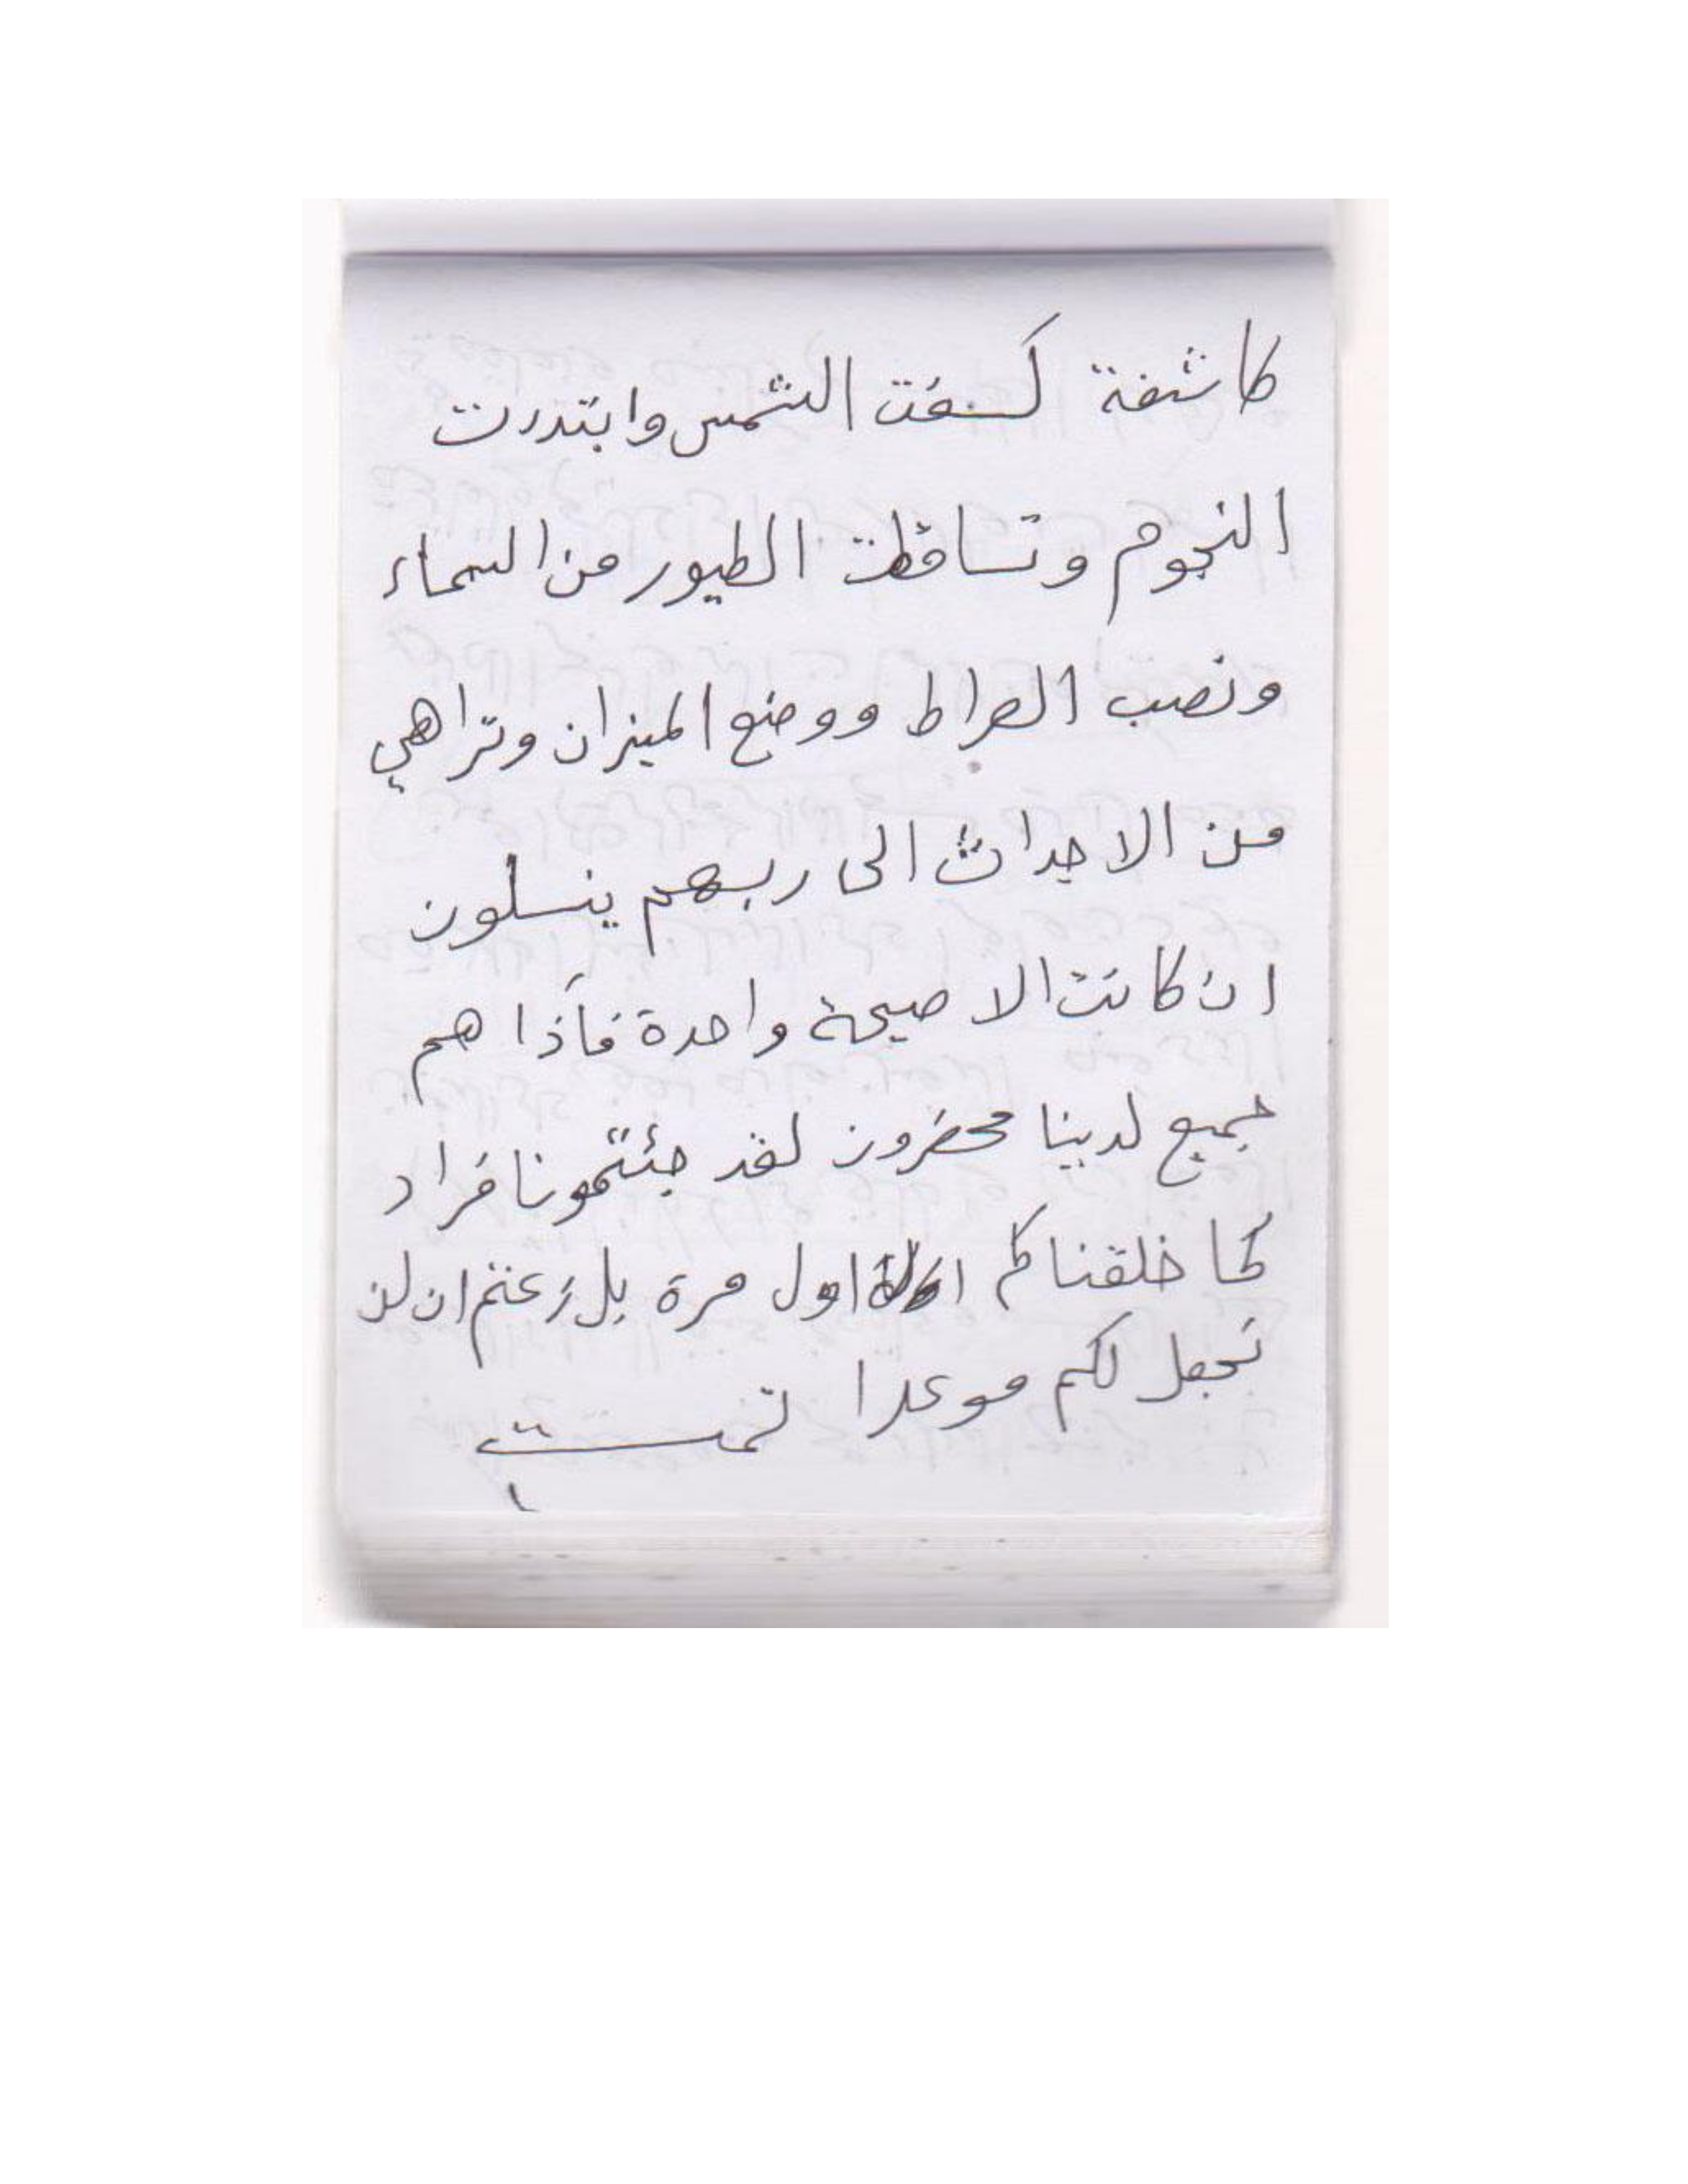 كاشفة كسفت الشمس وابتدرت
النجوم وتساقطت الطيور من السماء
ونصب الصراط ووضع الميزان وتراهي
من الاجداث الى ربهم ينسلون
ان كانت الا صيحة واحدة فأذا هم
جميع لدينا محضرون لقد جئتمونا فراد
كما خلقناكم اول مرة بل زعتم ان لن
نجعل لكم موعدا تمت